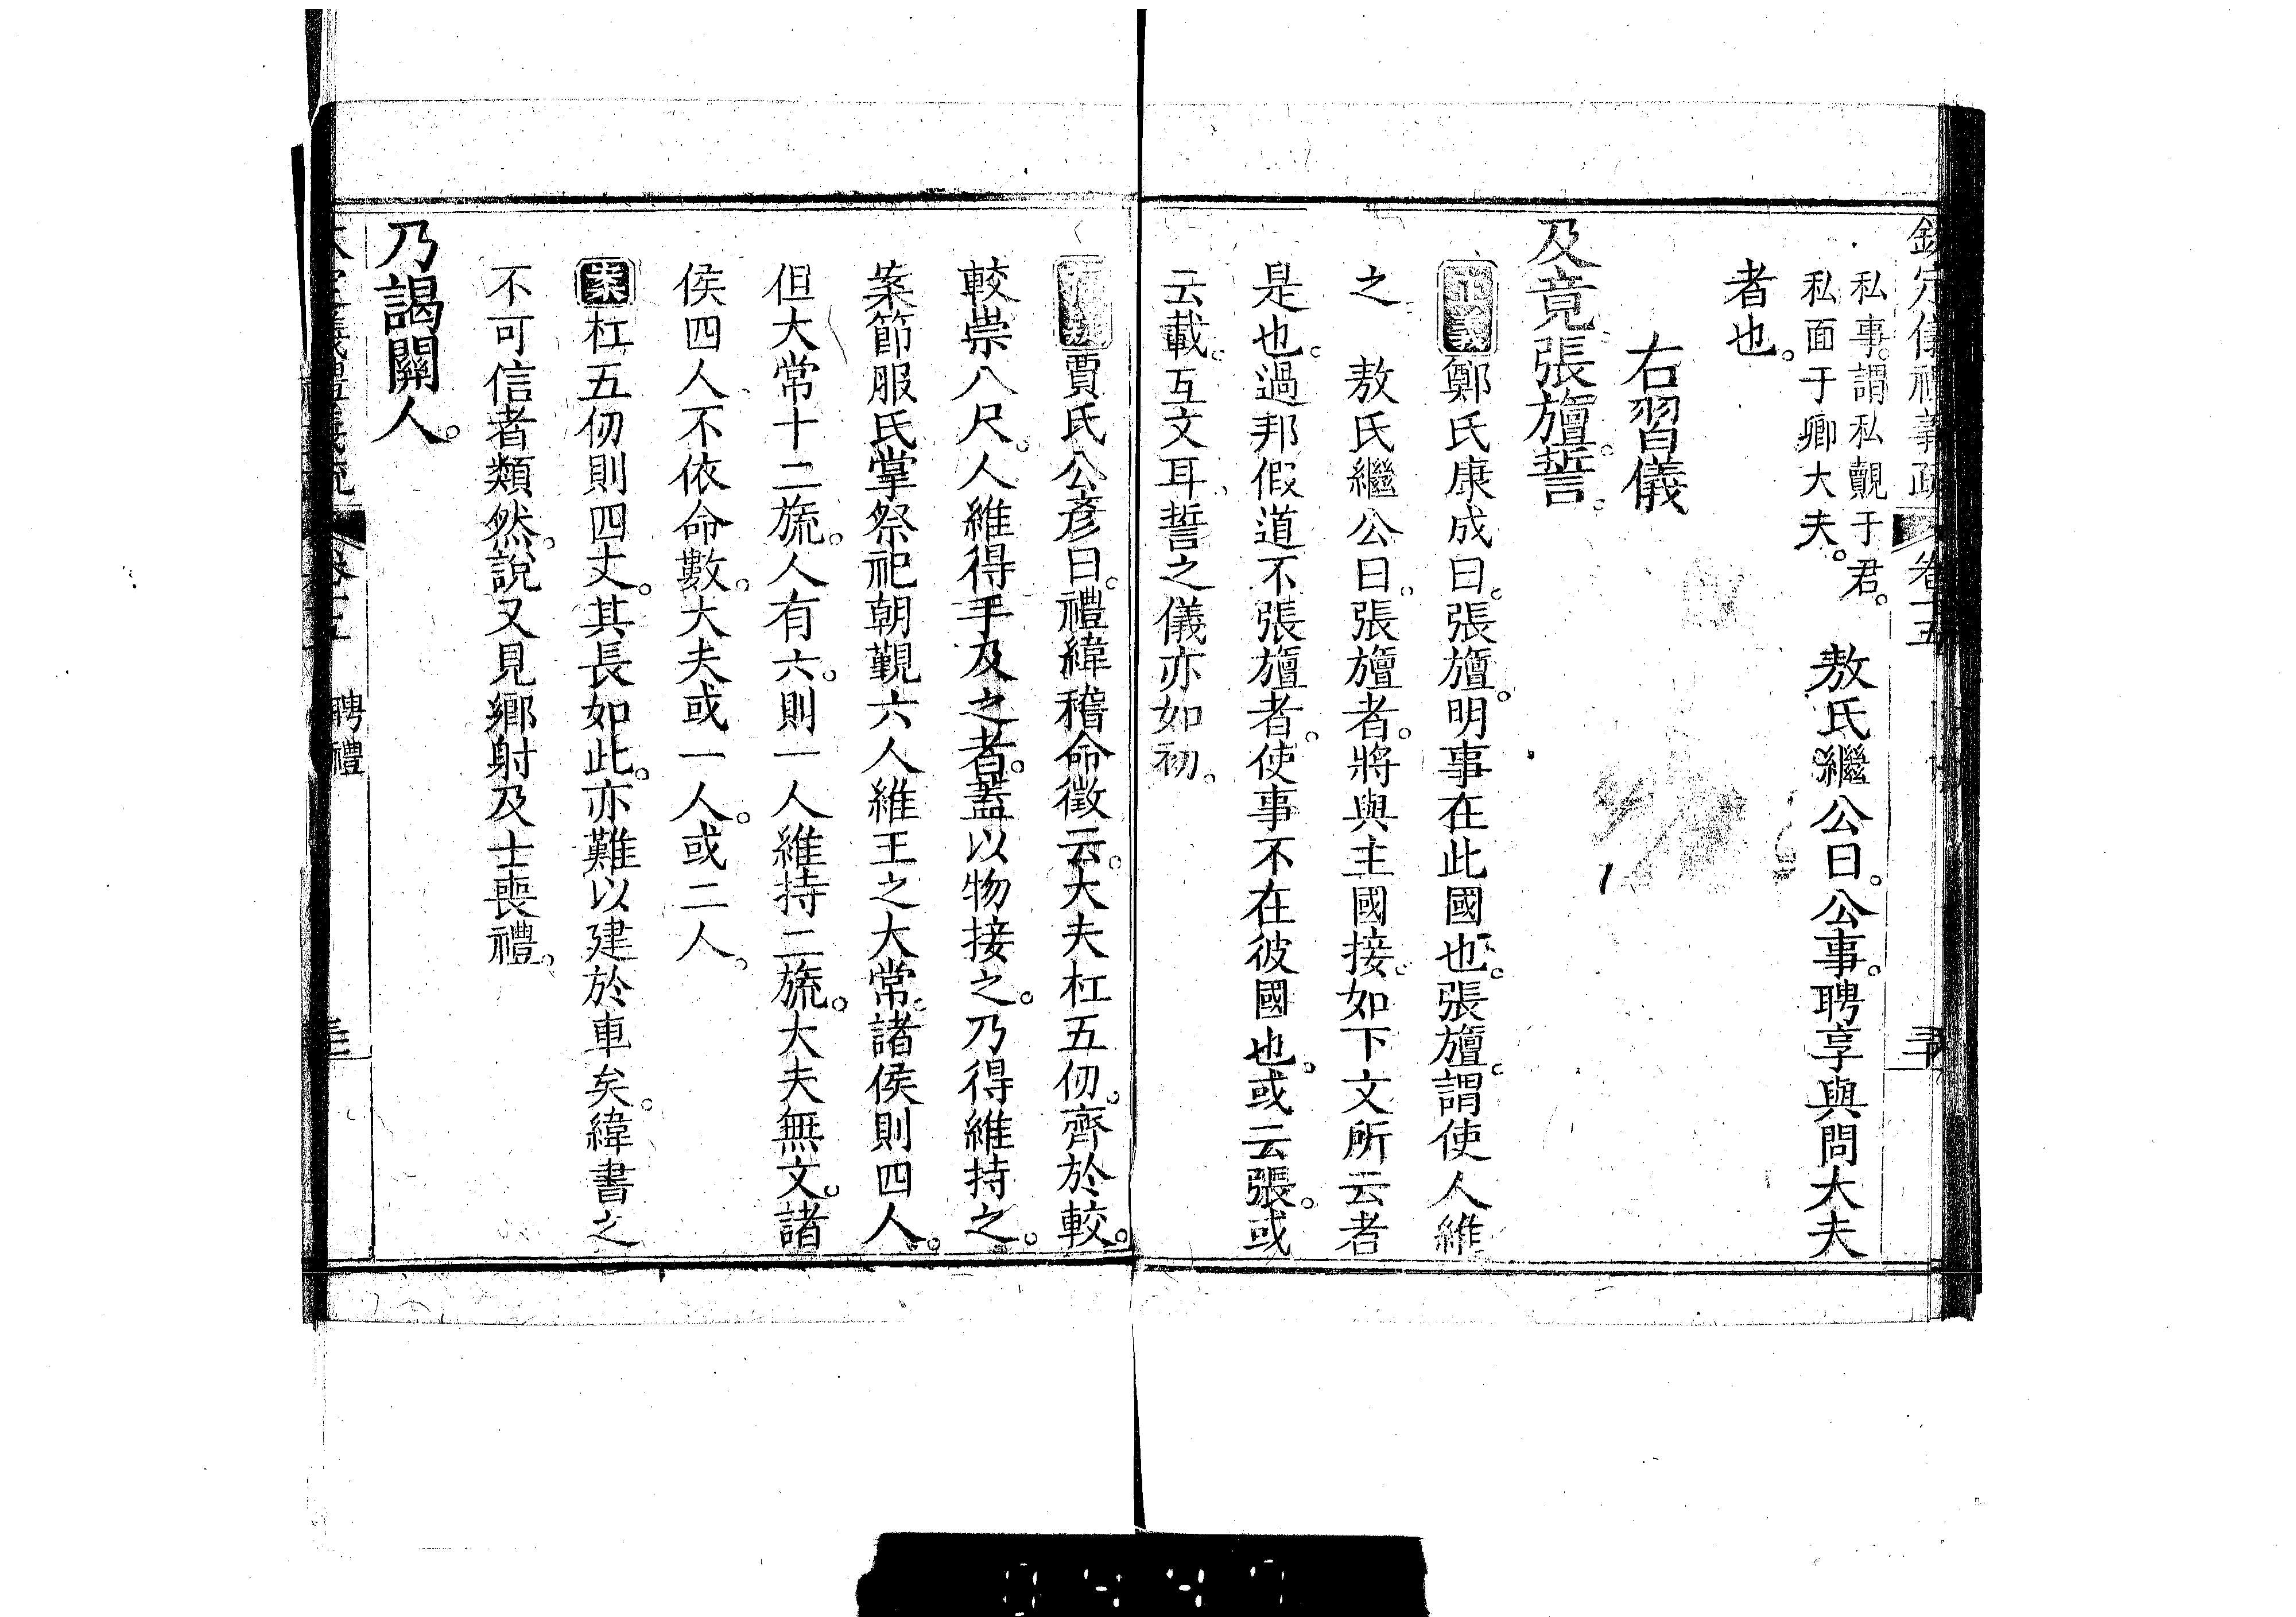 欽定儀禮義疏 卷十五
私事。謂私覿于君。
私面于卿大夫。
敖氏繼公曰。公事。聘享與問大夫
者也。
右習儀
及竟。張旜。誓。
正義鄭氏康成曰。張旜。明事在此國也。張旜。謂使人維
之 敖氏繼公曰。張旜者。將與主國接。如下文所云者
是也。過邦假道不張旜者。使事不在彼國也。或云張。或
云載。互文耳。誓之儀亦如初。
賈氏公彥曰。禮緯稽命徵云。大夫杠五仞。齊於較。
較崇八尺。人維得手及之者。蓋以物接之。乃得維持之。
案節服氏掌祭祀朝覲六人維王之大常。諸侯則四人。
但大常十二旒。人有六。則一人維持二旒。大夫無文。諸
侯四人不依命數。大夫或一人。或二人。
案杠五仞則四丈。其長如此。亦難以建於車矣。緯書之
不可信者類然。說又見鄉射及士喪禮。
乃謁關人。
聘禮